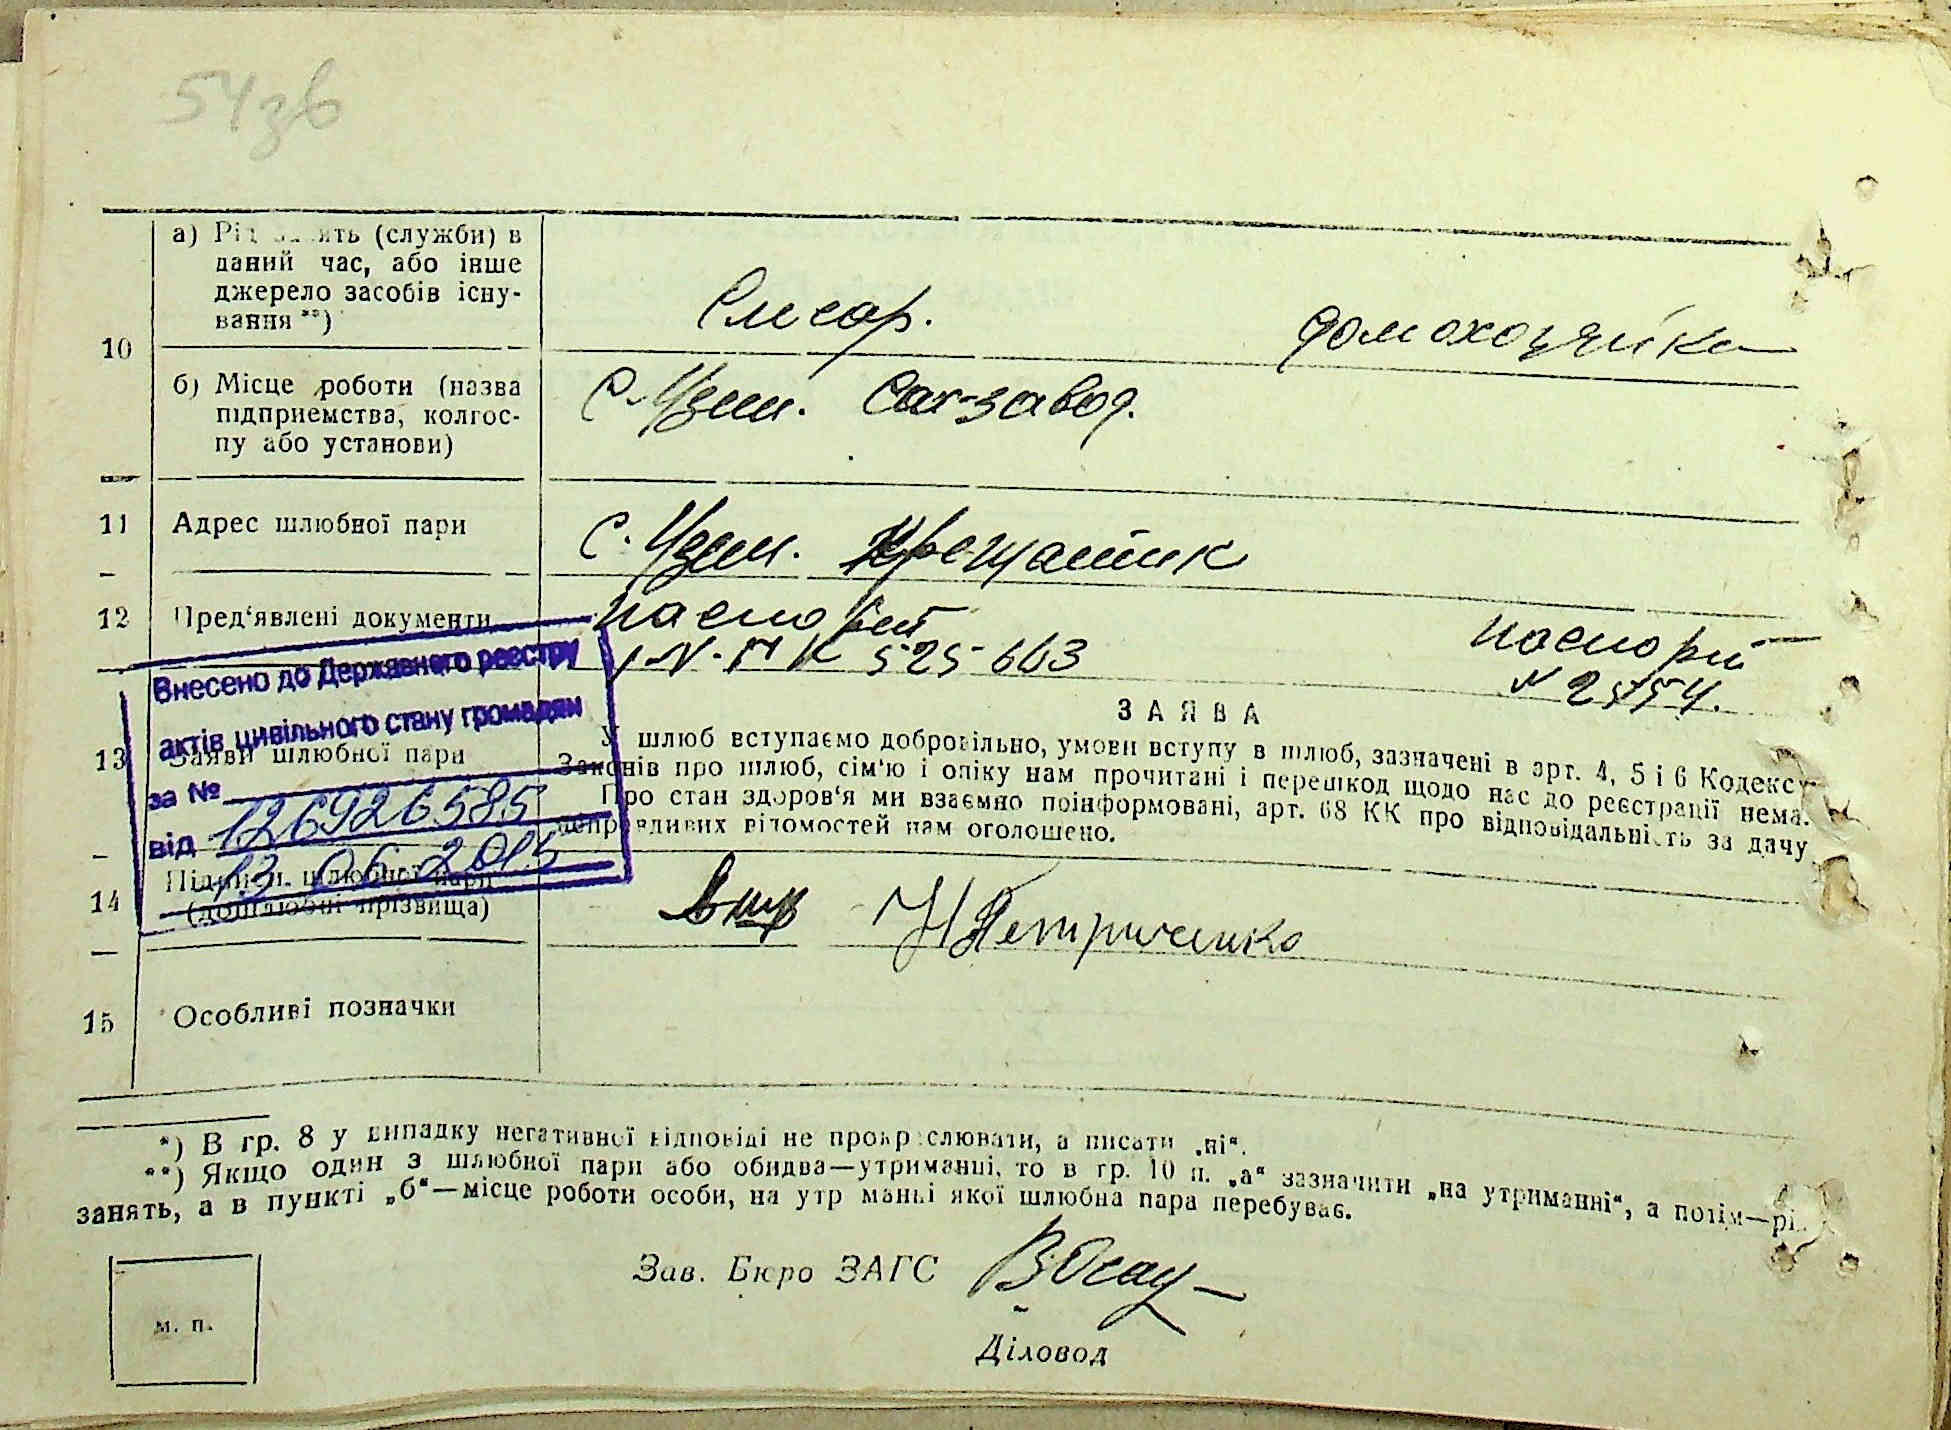 54зв
10
а) Рід занять (служби) в
даний час, або інше
джерело засобів існу-
вання **)
Слюсар.
домохозяйка
б) Місце роботи (назва
підприємства, колгос-
пу або установи)
С. Узин. Сах-завод.
11
Адрес шлюбної пари
С. Узин. Хрещатик
12
Пред‘явлені документи
паспорт
525 603
паспорт
Внесено до Державного реєстру
актів цивільного стану громадян
за № 126926585
від 13 06 2015
13
Заяви шлюбної пари
ЗАЯВА
У шлюб вступаємо добровільно, умови вступу в шлюб, зазначені в арт. 4, 5 і 6 Кодексу
Законів про шлюб, сім‘ю і опіку нам прочитані і перешкод щодо нас до реєстрації нема.
Про стан здоров‘я ми взаємно поінформовані, арт. 68 КК про відповідальність за дачу
неправдивих відомостей нам оголошено.
14
Підписи шлюбної пари
(дошлюбні прізвища)
Н Петриченко
15
Особливі позначки
*) В гр. 8 у випадку негативної відповіді не прокреслювати, а писати „ні“.
**) Якщо один з шлюбної пари або обидва—утриманці, то в гр. 10 п. „а“ зазначити „на утриманні“, а потім—рід
занять, а в пункті „б“—місце роботи особи, на утриманні якої шлюбна пара перебуває.
Зав. Бюро ЗАГС
Діловод
м. п.